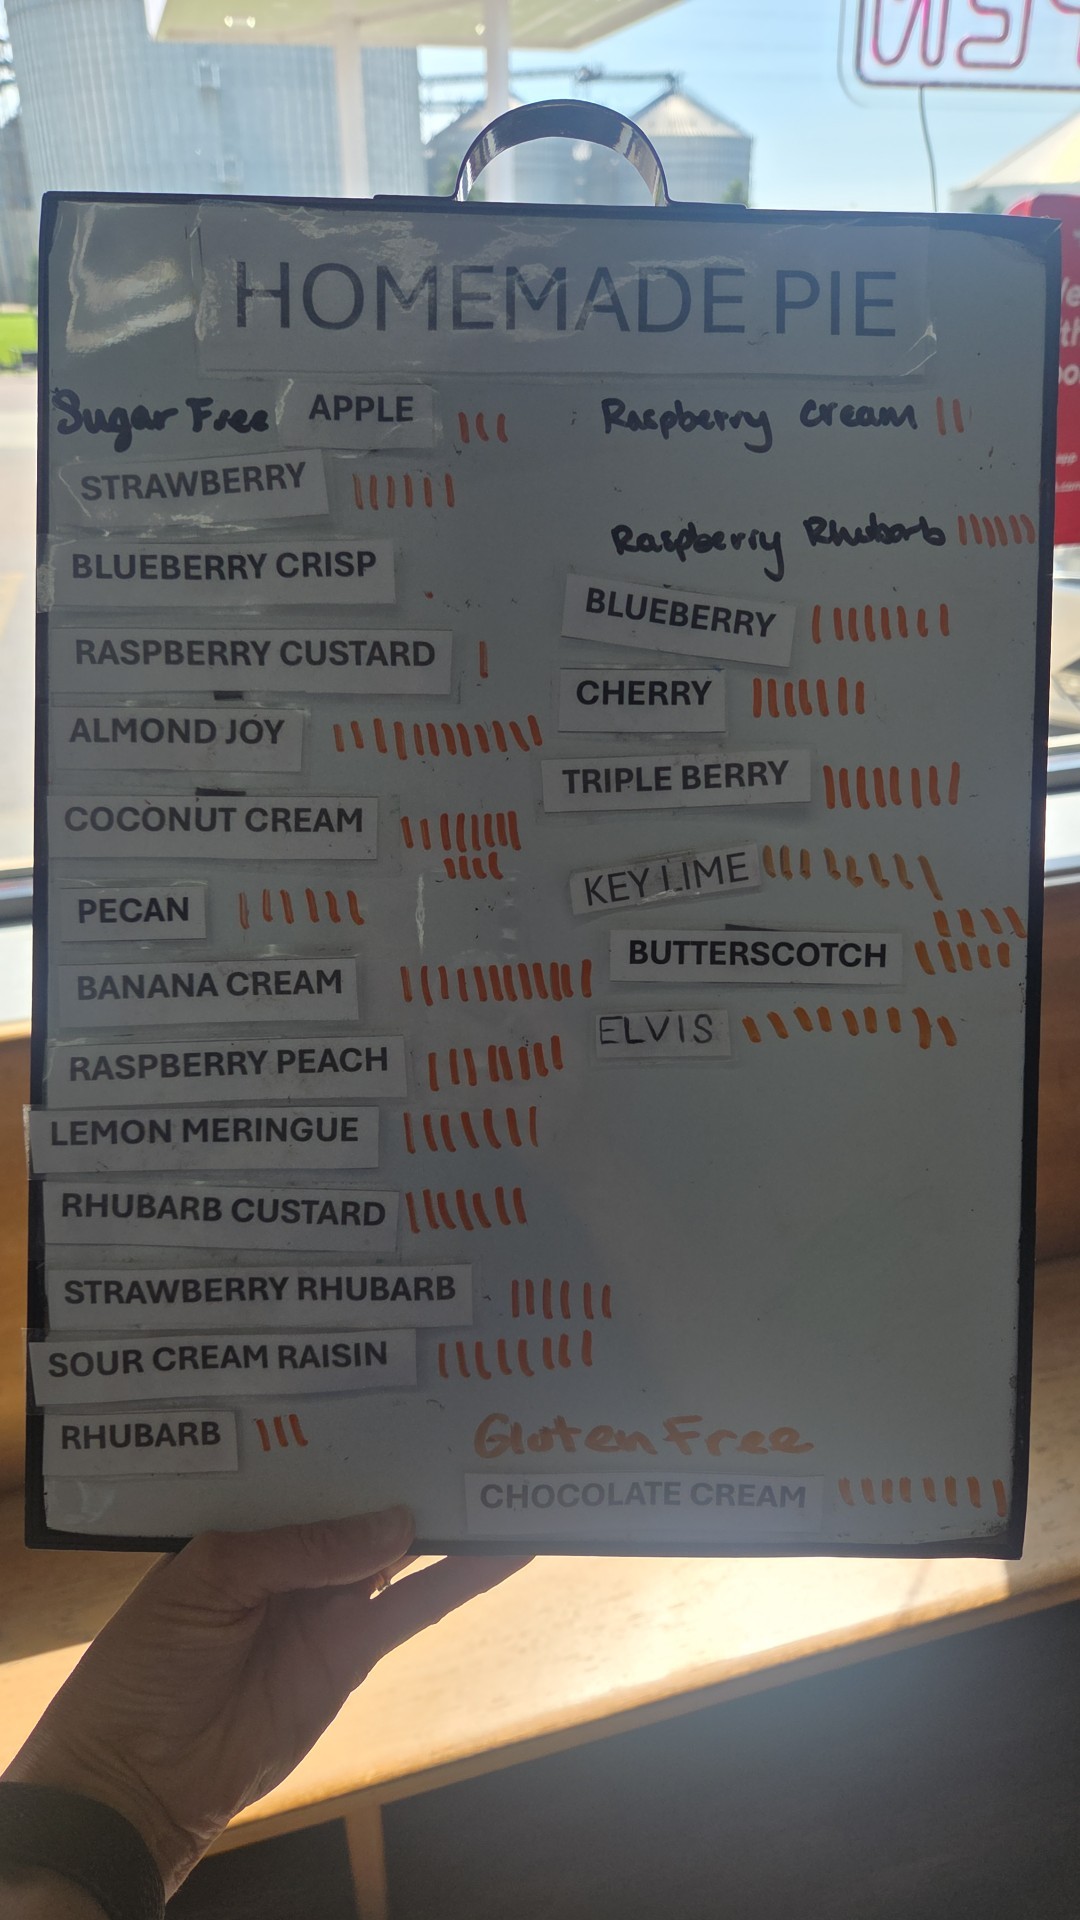 HOMEMADE PIE
Sugar Free APPLE
STRAWBERRY
BLUEBERRY CRISP
RASPBERRY CUSTARD
ALMOND JOY
COCONUT CREAM
PECAN
BANANA CREAM
RASPBERRY PEACH
LEMON MERINGUE
RHUBARB CUSTARD
STRAWBERRY RHUBARB
SOUR CREAM RAISIN
RHUBARB
Raspberry Cream
Raspberry Rhubarb
BLUEBERRY
CHERRY
TRIPLE BERRY
KEY LIME
BUTTERSCOTCH
ELVIS
Gluten Free
CHOCOLATE CREAM